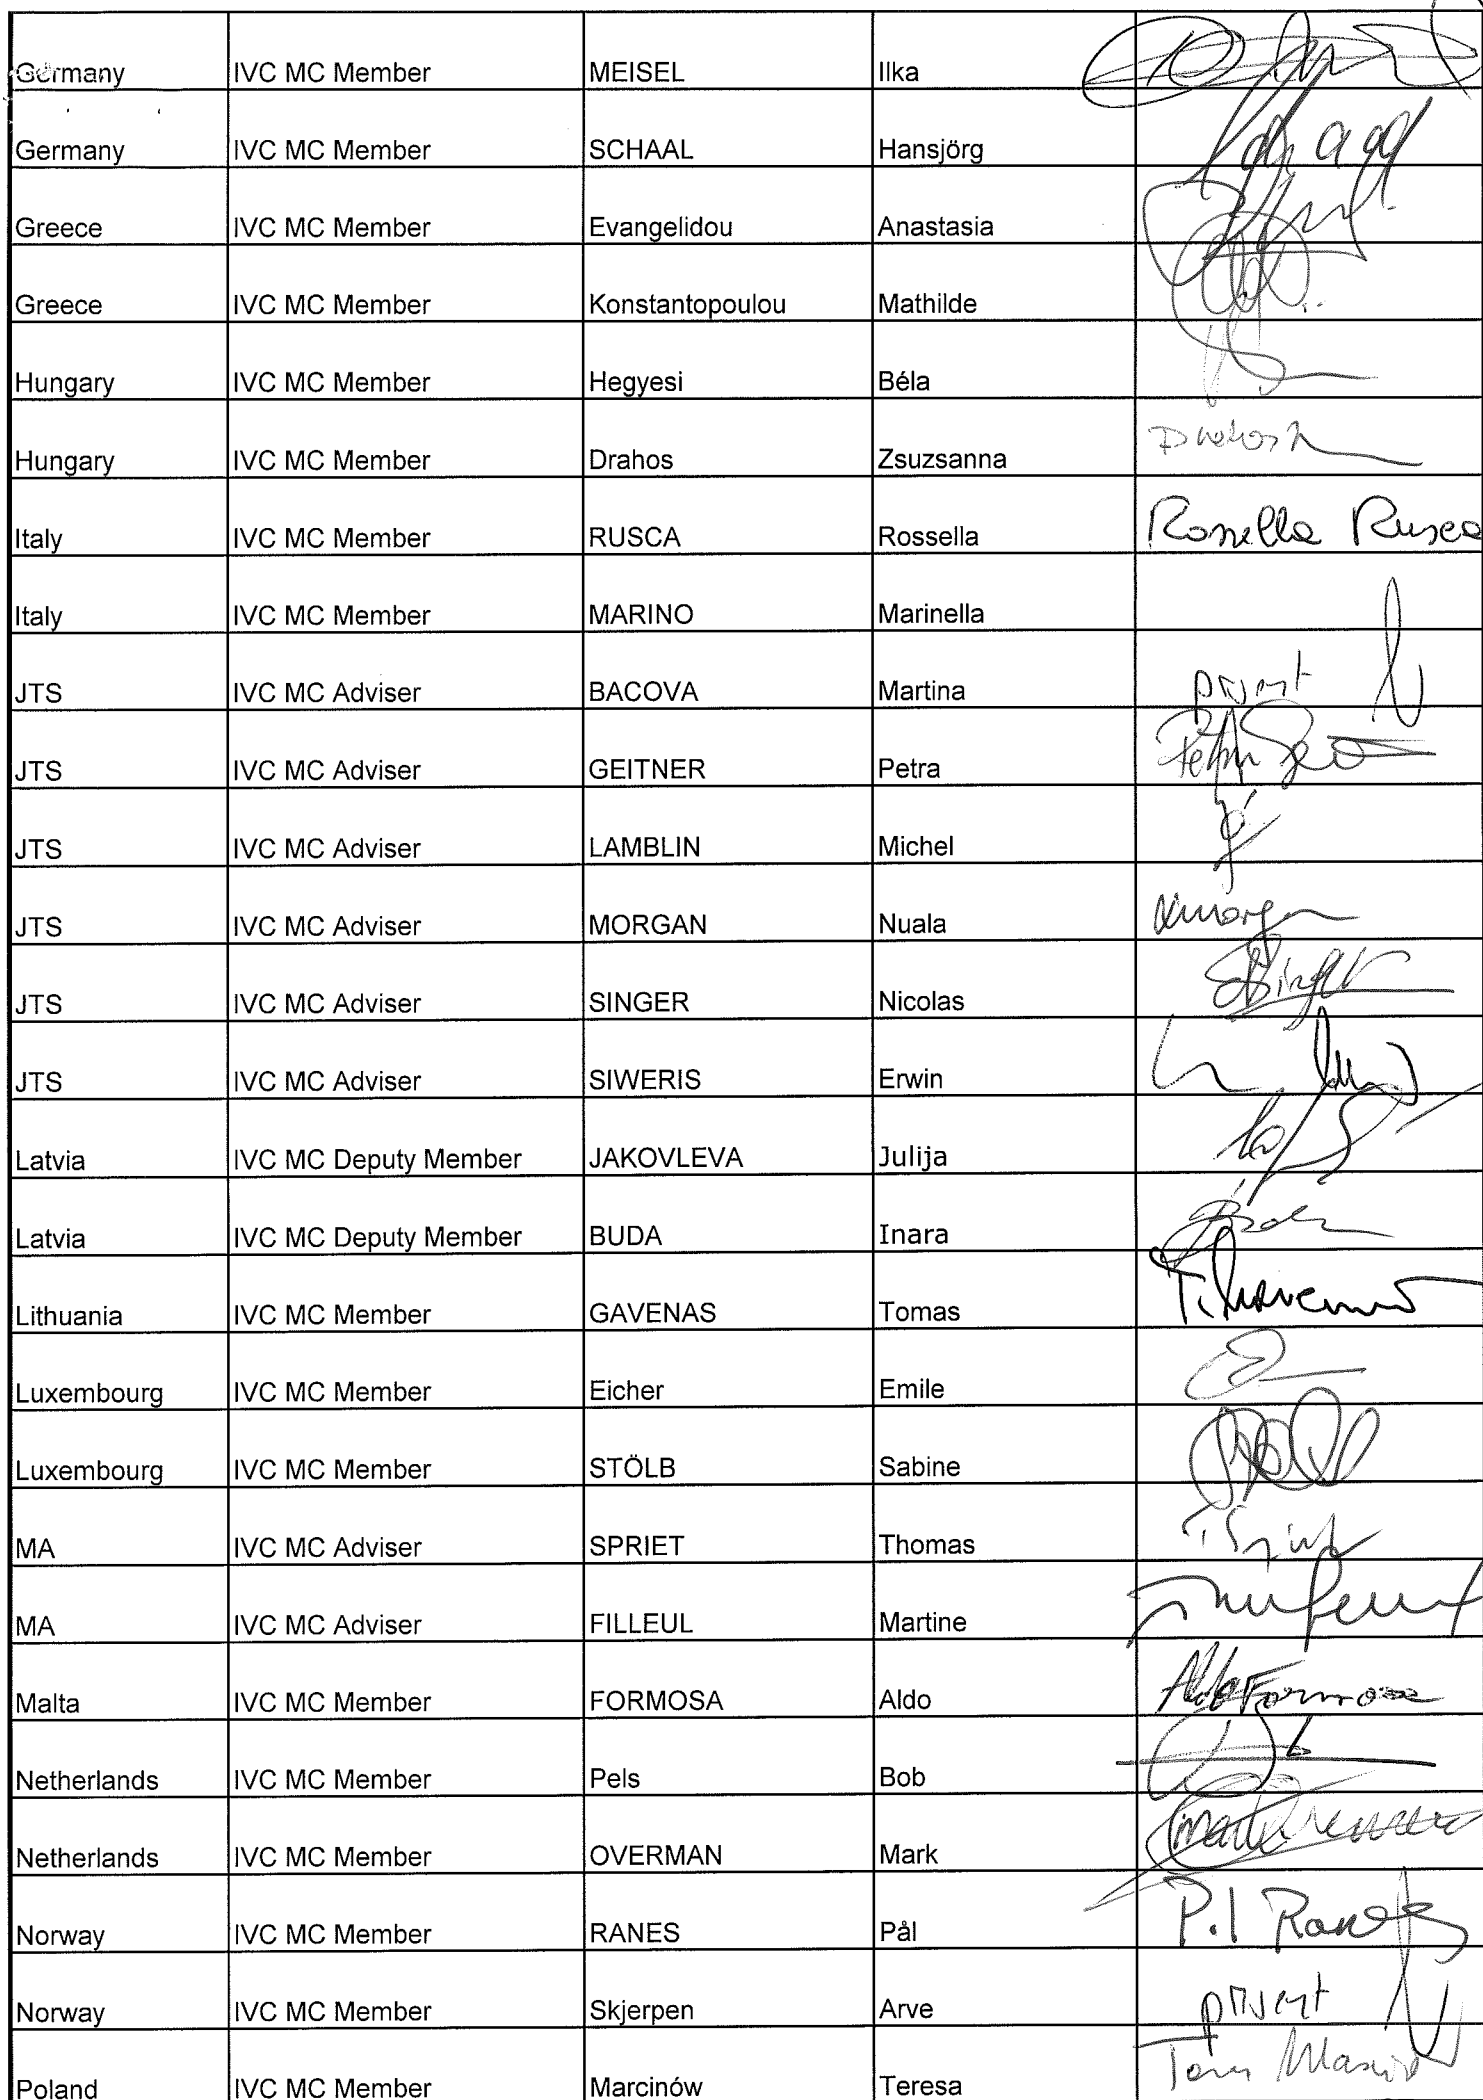 Germany IVC MC Member MEISEL Ilka
Germany IVC MC Member SCHAAL Hansjörg
Greece IVC MC Member Evangelidou Anastasia
Greece IVC MC Member Konstantopoulou Mathilde
Hungary IVC MC Member Hegyesi Béla
Hungary IVC MC Member Drahos Zsuzsanna
Italy IVC MC Member RUSCA Rossella Rossella Rusca
Italy IVC MC Member MARINO Marinella
JTS IVC MC Adviser BACOVA Martina present
JTS IVC MC Adviser GEITNER Petra
JTS IVC MC Adviser LAMBLIN Michel
JTS IVC MC Adviser MORGAN Nuala NMorgan
JTS IVC MC Adviser SINGER Nicolas
JTS IVC MC Adviser SIWERIS Erwin
Latvia IVC MC Deputy Member JAKOVLEVA Julija
Latvia IVC MC Deputy Member BUDA Inara
Lithuania IVC MC Member GAVENAS Tomas
Luxembourg IVC MC Member Eicher Emile
Luxembourg IVC MC Member STÖLB Sabine
MA IVC MC Adviser SPRIET Thomas
MA IVC MC Adviser FILLEUL Martine
Malta IVC MC Member FORMOSA Aldo Aldo Formosa
Netherlands IVC MC Member Pels Bob
Netherlands IVC MC Member OVERMAN Mark
Norway IVC MC Member RANES Pål
Norway IVC MC Member Skjerpen Arve present
Poland IVC MC Member Marcinów Teresa